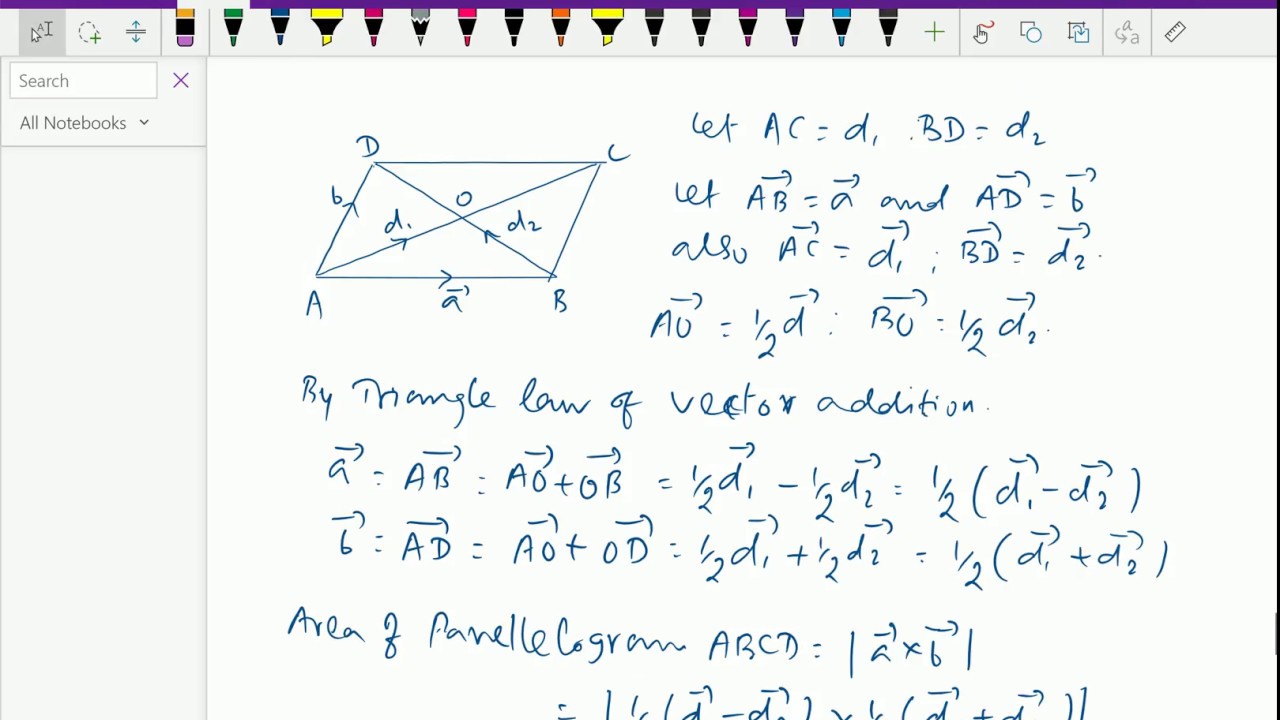 Search
All Notebooks
D
C
b
O
d₁
d₂
A
a⃗
B
Let AC = d₁ . BD = d₂
Let AB⃗ = a⃗ and AD⃗ = b⃗
also AC⃗ = d₁⃗ ; BD⃗ = d₂⃗ .
AO⃗ = ½ d⃗ ; BO⃗ = ½ d₂⃗ .
By Triangle law of vector addition.
a⃗ = AB⃗ = AO⃗ + OB⃗ = ½ d₁⃗ - ½ d₂⃗ = ½ ( d₁⃗ - d₂⃗ )
b⃗ = AD⃗ = AO⃗ + OD⃗ = ½ d₁⃗ + ½ d₂⃗ = ½ ( d₁⃗ + d₂⃗ )
Area of Parellelogram ABCD = | a⃗ × b⃗ |